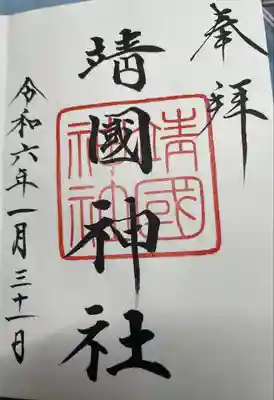 奉拝
靖國神社
靖國神社
令和六年一月三十一日